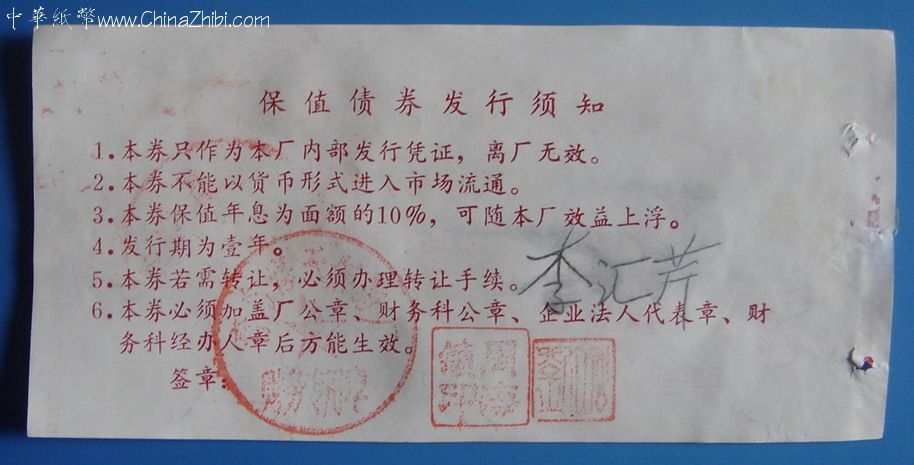 中華紙幣 www.ChinaZhibi.com
保值债券发行须知
1.本券只作为本厂内部发行凭证，离厂无效。
2.本券不能以货币形式进入市场流通。
3.本券保值年息为面额的10%，可随本厂效益上浮。
4.发行期为壹年。
5.本券若需转让，必须办理转让手续。
李汇芹
6.本券必须加盖厂公章、财务科公章、企业法人代表章、财
务科经办人章后方能生效。
签章：
财务专用章